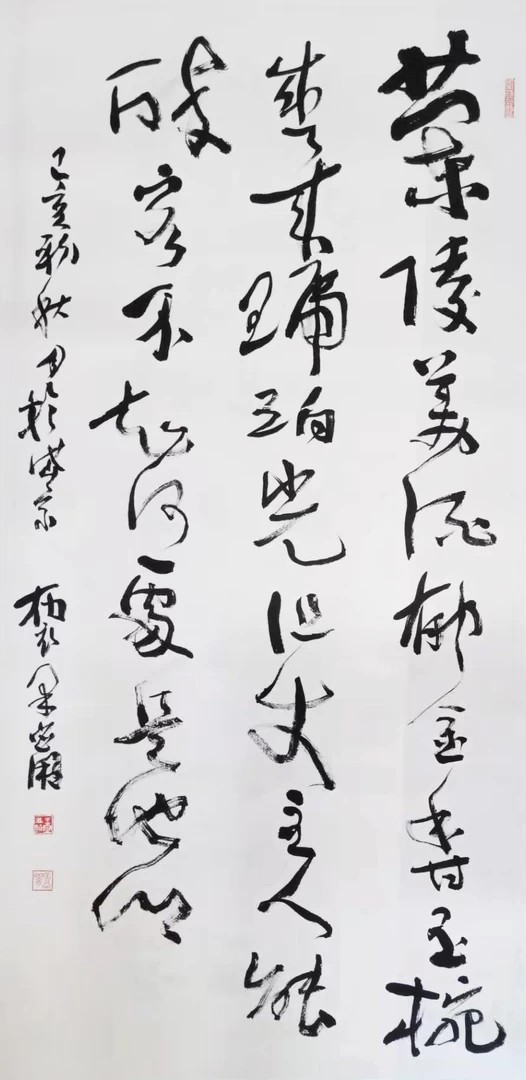 蘭陵美酒郁金香玉椀
盛来琥珀光但使主人能
醉客不知何處是他鄉
己亥秋於京